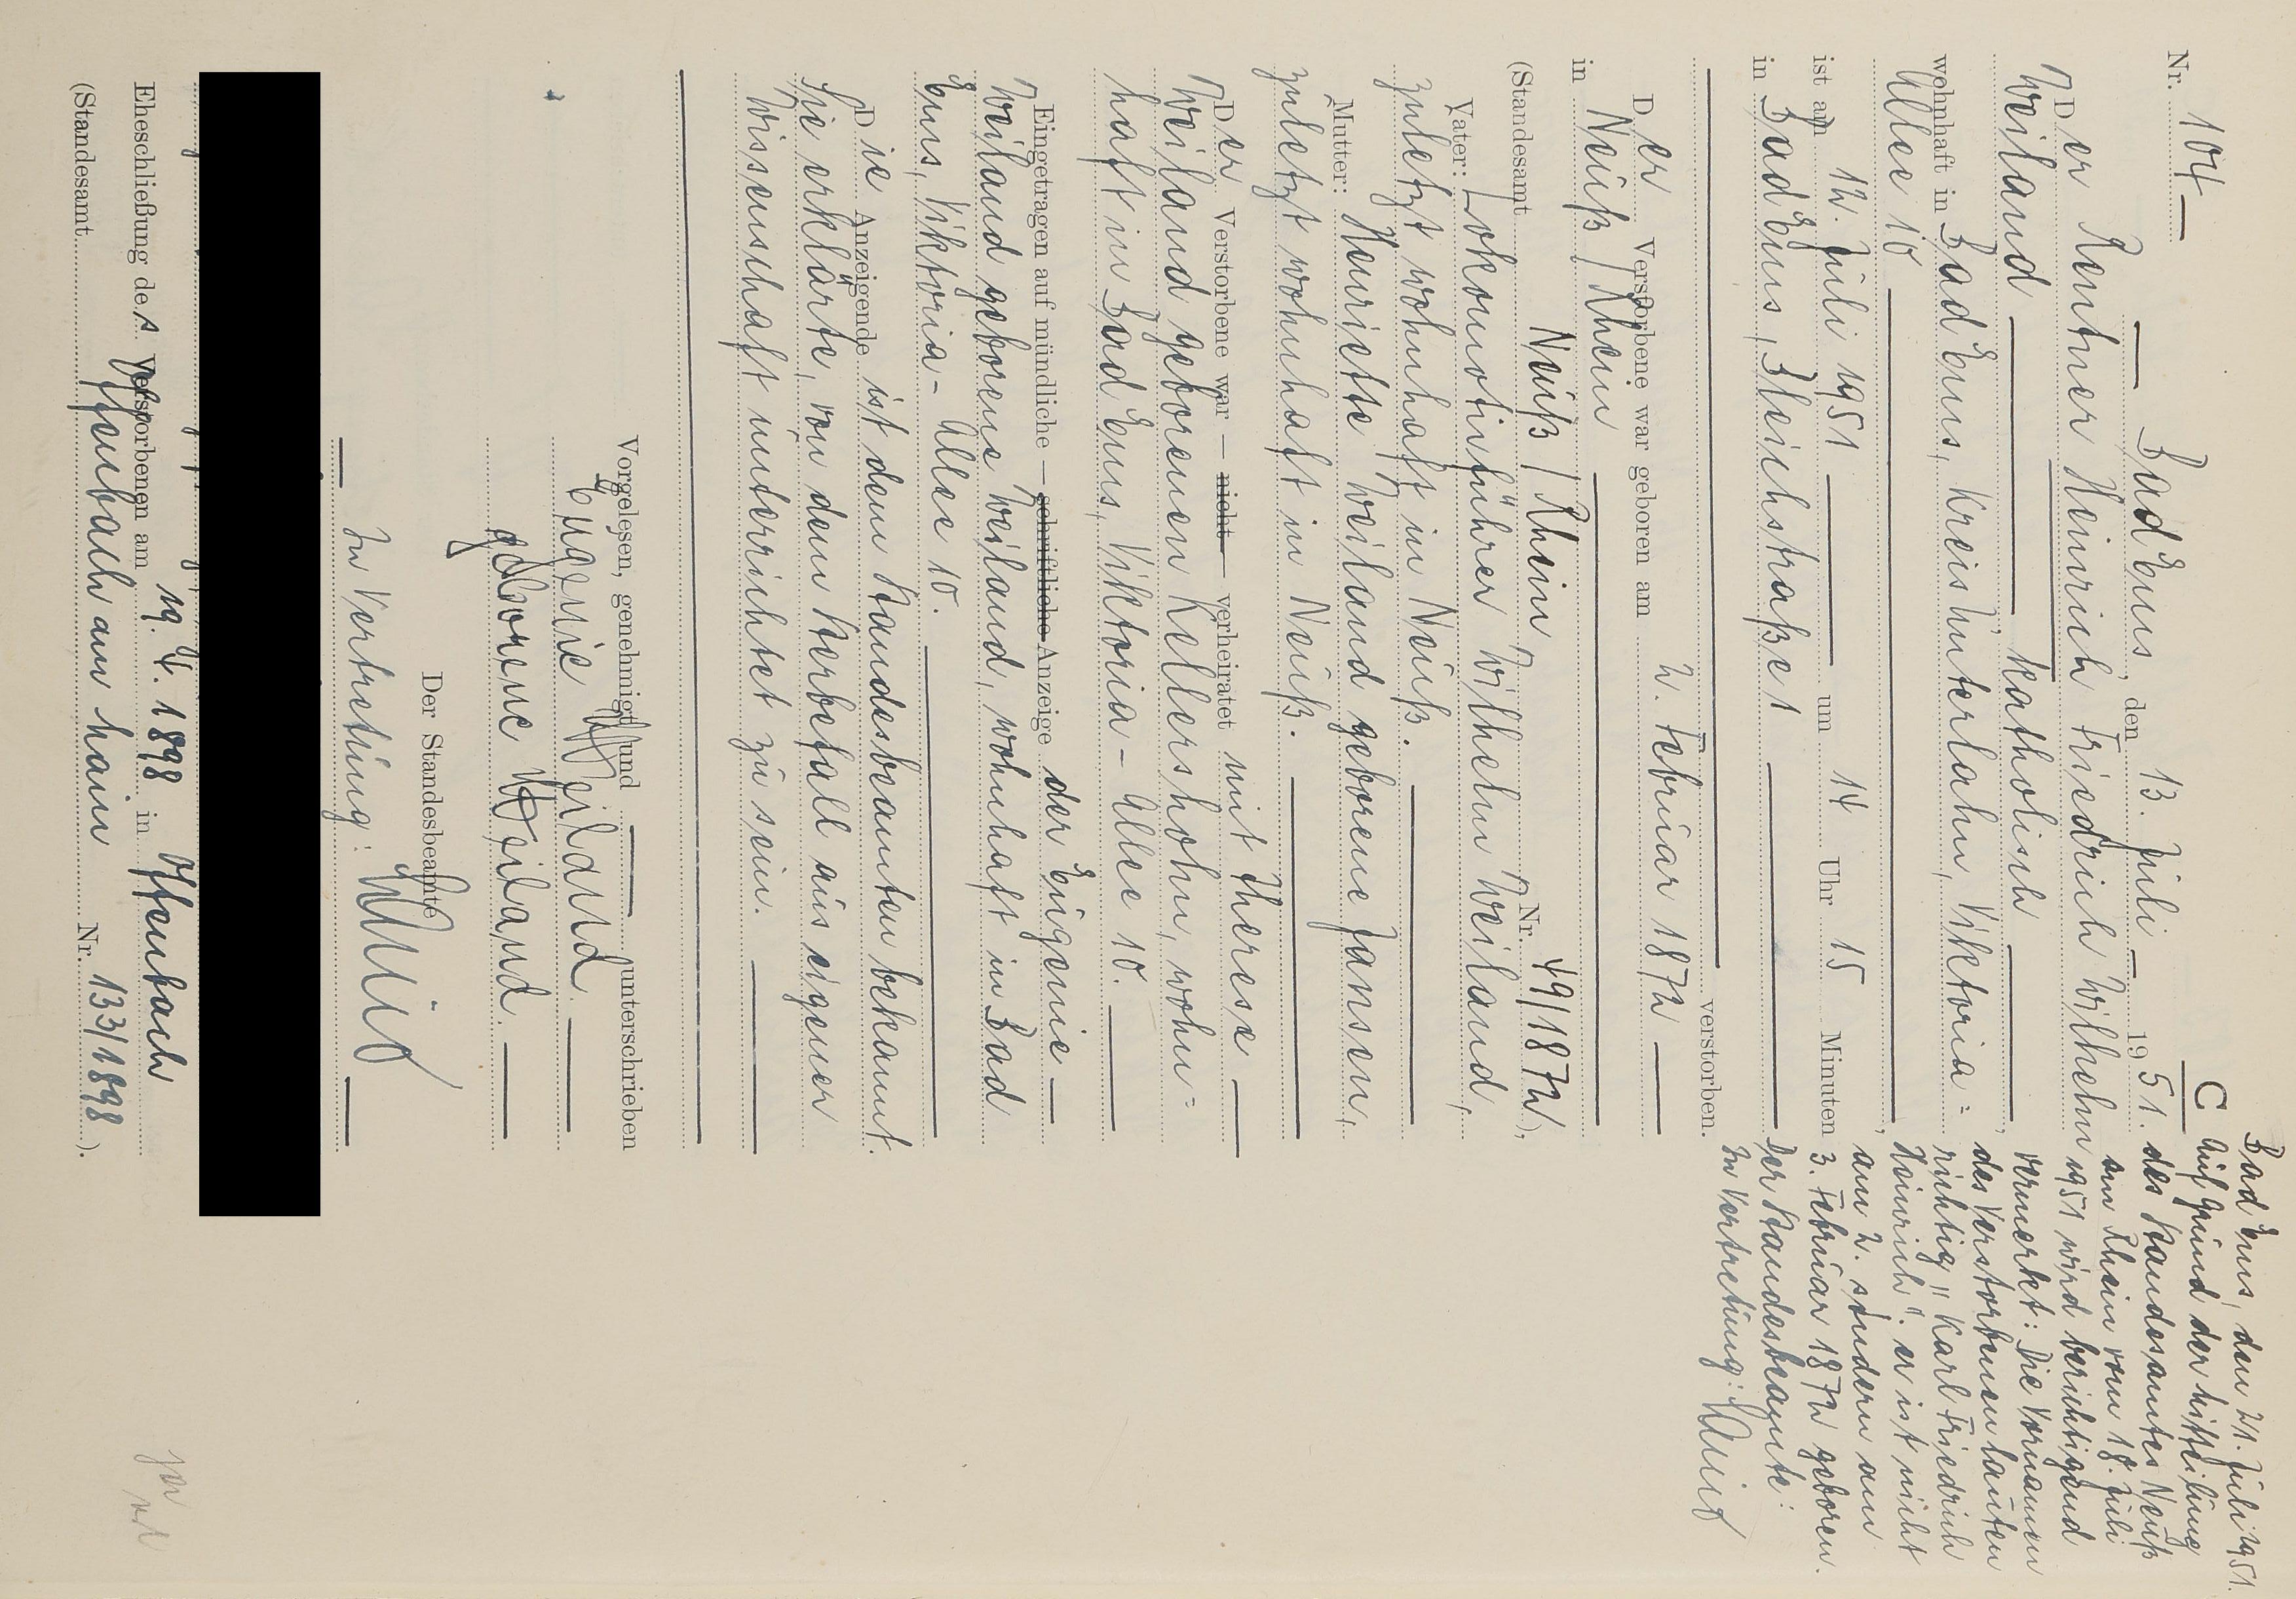 Nr. 104
C
Bad Ems, den 13. Juli 1951.
Der Rentner Heinrich Friedrich Wilhelm
Weiland katholisch,
wohnhaft in Bad Ems, Kreis Unterlahn, Viktoria=
Allee 10,
ist am 12. Juli 1951 um 14 Uhr 15 Minuten
in Bad Ems, Bleichstraße 1
verstorben.
Der Verstorbene war geboren am 2. Februar 1872
in Neuß / Rhein
(Standesamt Neuß / Rhein Nr. 49/1872),
Vater: Lokomotivführer Wilhelm Weiland,
zuletzt wohnhaft in Neuß.
Mutter: Henriette Weiland geborene Jansen,
zuletzt wohnhaft in Neuß.
Der Verstorbene war — nicht — verheiratet mit Therese
Weiland geborenen Kellershohn, wohn=
haft in Bad Ems, Viktoria - Allee 10.
Eingetragen auf mündliche — schriftliche Anzeige der Eugenie
Weiland geborene Weiland, wohnhaft in Bad
Ems, Viktoria - Allee 10.
Die Anzeigende ist dem Standesbeamten bekannt.
Sie erklärte, von dem Sterbefall aus eigener
Wissenschaft unterrichtet zu sein.
Vorgelesen, genehmigt und unterschrieben
Eugenie Weiland
geborene Weiland.
Der Standesbeamte
In Vertretung:
Eheschließung des Verstorbenen am 19. 4. 1898 in Offenbach
(Standesamt Offenbach am Main Nr. 133/1898).
Bad Ems, den 21. Juli 1951.
Auf Grund der Mitteilung
des Standesamtes Neuß
am Rhein vom 18. Juli
1951 wird berichtigend
vermerkt: Die Vornamen
des Verstorbenen lauten
richtig "Karl Friedrich
Heinrich". er ist nicht
am 2. sondern am
3. Februar 1872 geboren.
Der Standesbeamte:
In Vertretung: